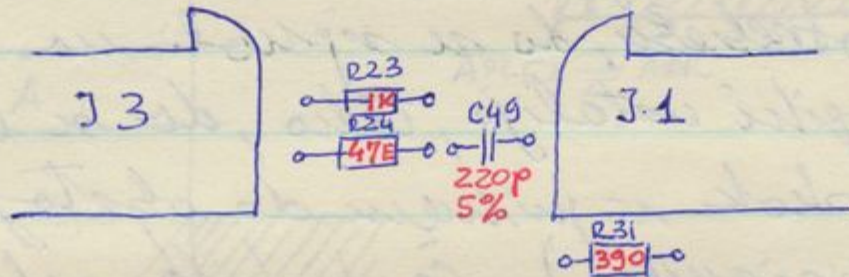 R23
J3
1K
R24
47E
C49
220p
5%
J.1
R31
390